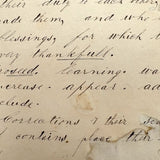 their duty to each other
made them, and who
blessings, for which t
very thankfull.
owed, learning wa
ncrease. appear. ad
clude.
Corrections & their se
contains, place their